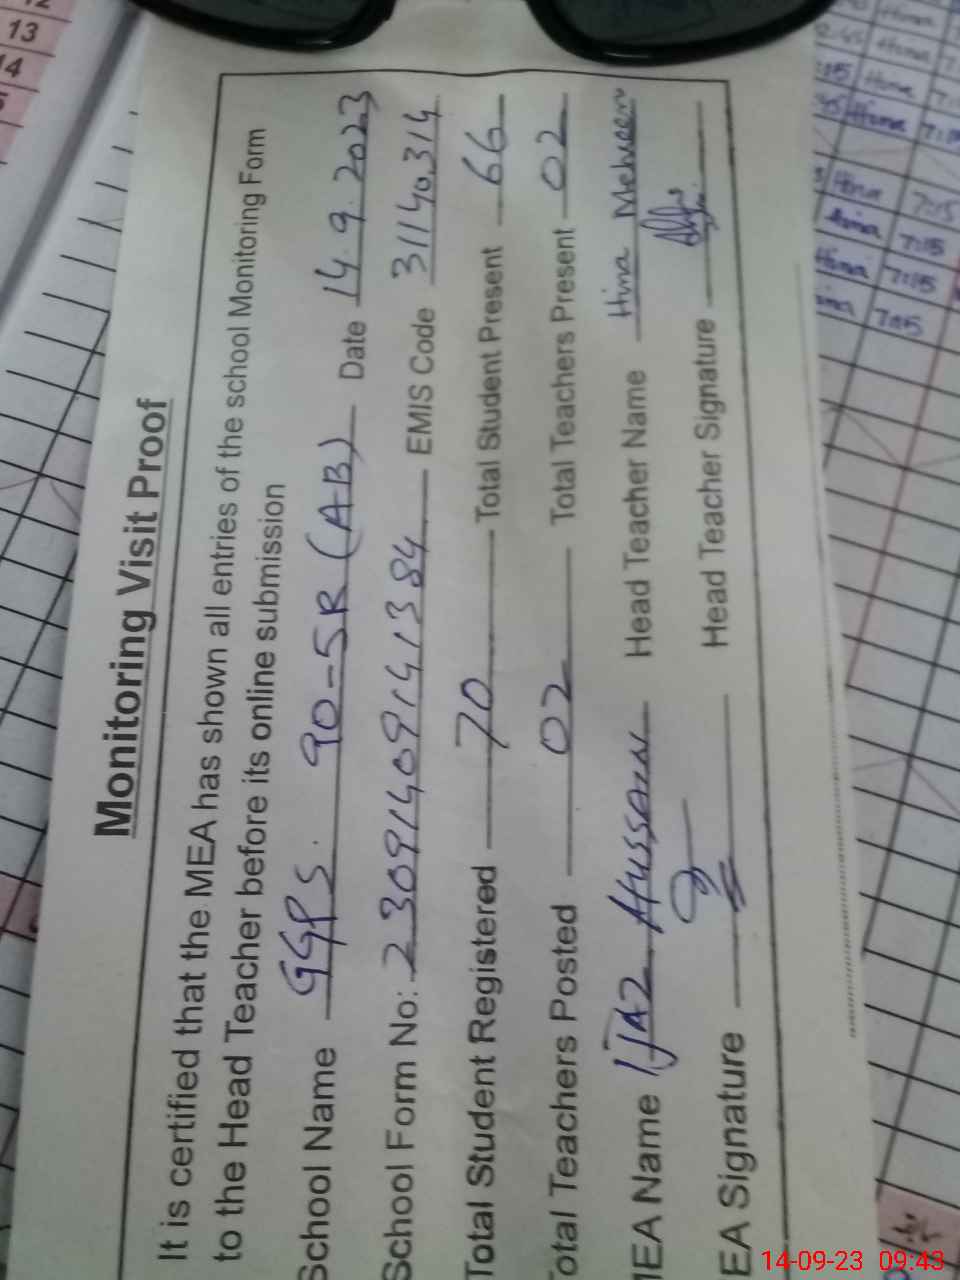 Monitoring Visit Proof
It is certified that the MEA has shown all entries of the school Monitoring Form
to the Head Teacher before its online submission
School Name GGPS. 90-5R (AB) Date 14.9.2023
School Form No: 23091409141384 EMIS Code 31140314
Total Student Registered 70 Total Student Present 66
Total Teachers Posted 02 Total Teachers Present 02
MEA Name IJAZ Hussain Head Teacher Name Hina Mehreen
EA Signature Head Teacher Signature
14-09-23 09:43
13
Hina
Hina
Hina 7:15
Hina 7:15
Hina 7:15
Hina 7:15
7:15